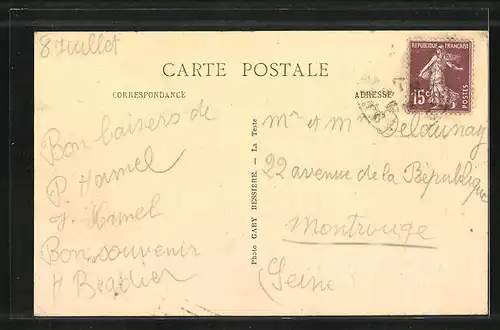 8 Juillet
CARTE POSTALE
CORRESPONDANCE
ADRESSE
RÉPUBLIQUE FRANÇAISE
15c
POSTES
Bon baisers de
P. Hamel
J. Hamel
Bon souvenir
Photo GABY BESSIÈRE. — La Teste
Mr et M Delaunay
22 avenue de la République
Montrouge
(Seine)